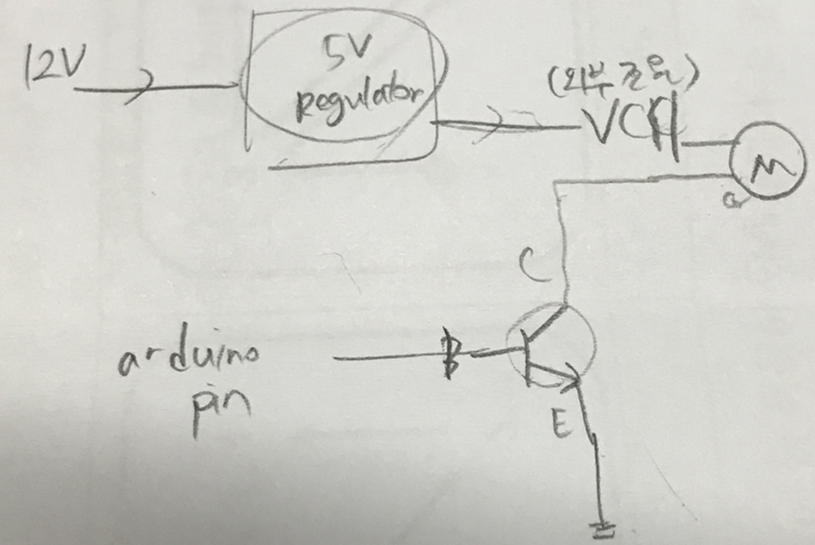 12V
5V
Regulator
(외부전원)
VCC
M
C
arduino
pin
B
E